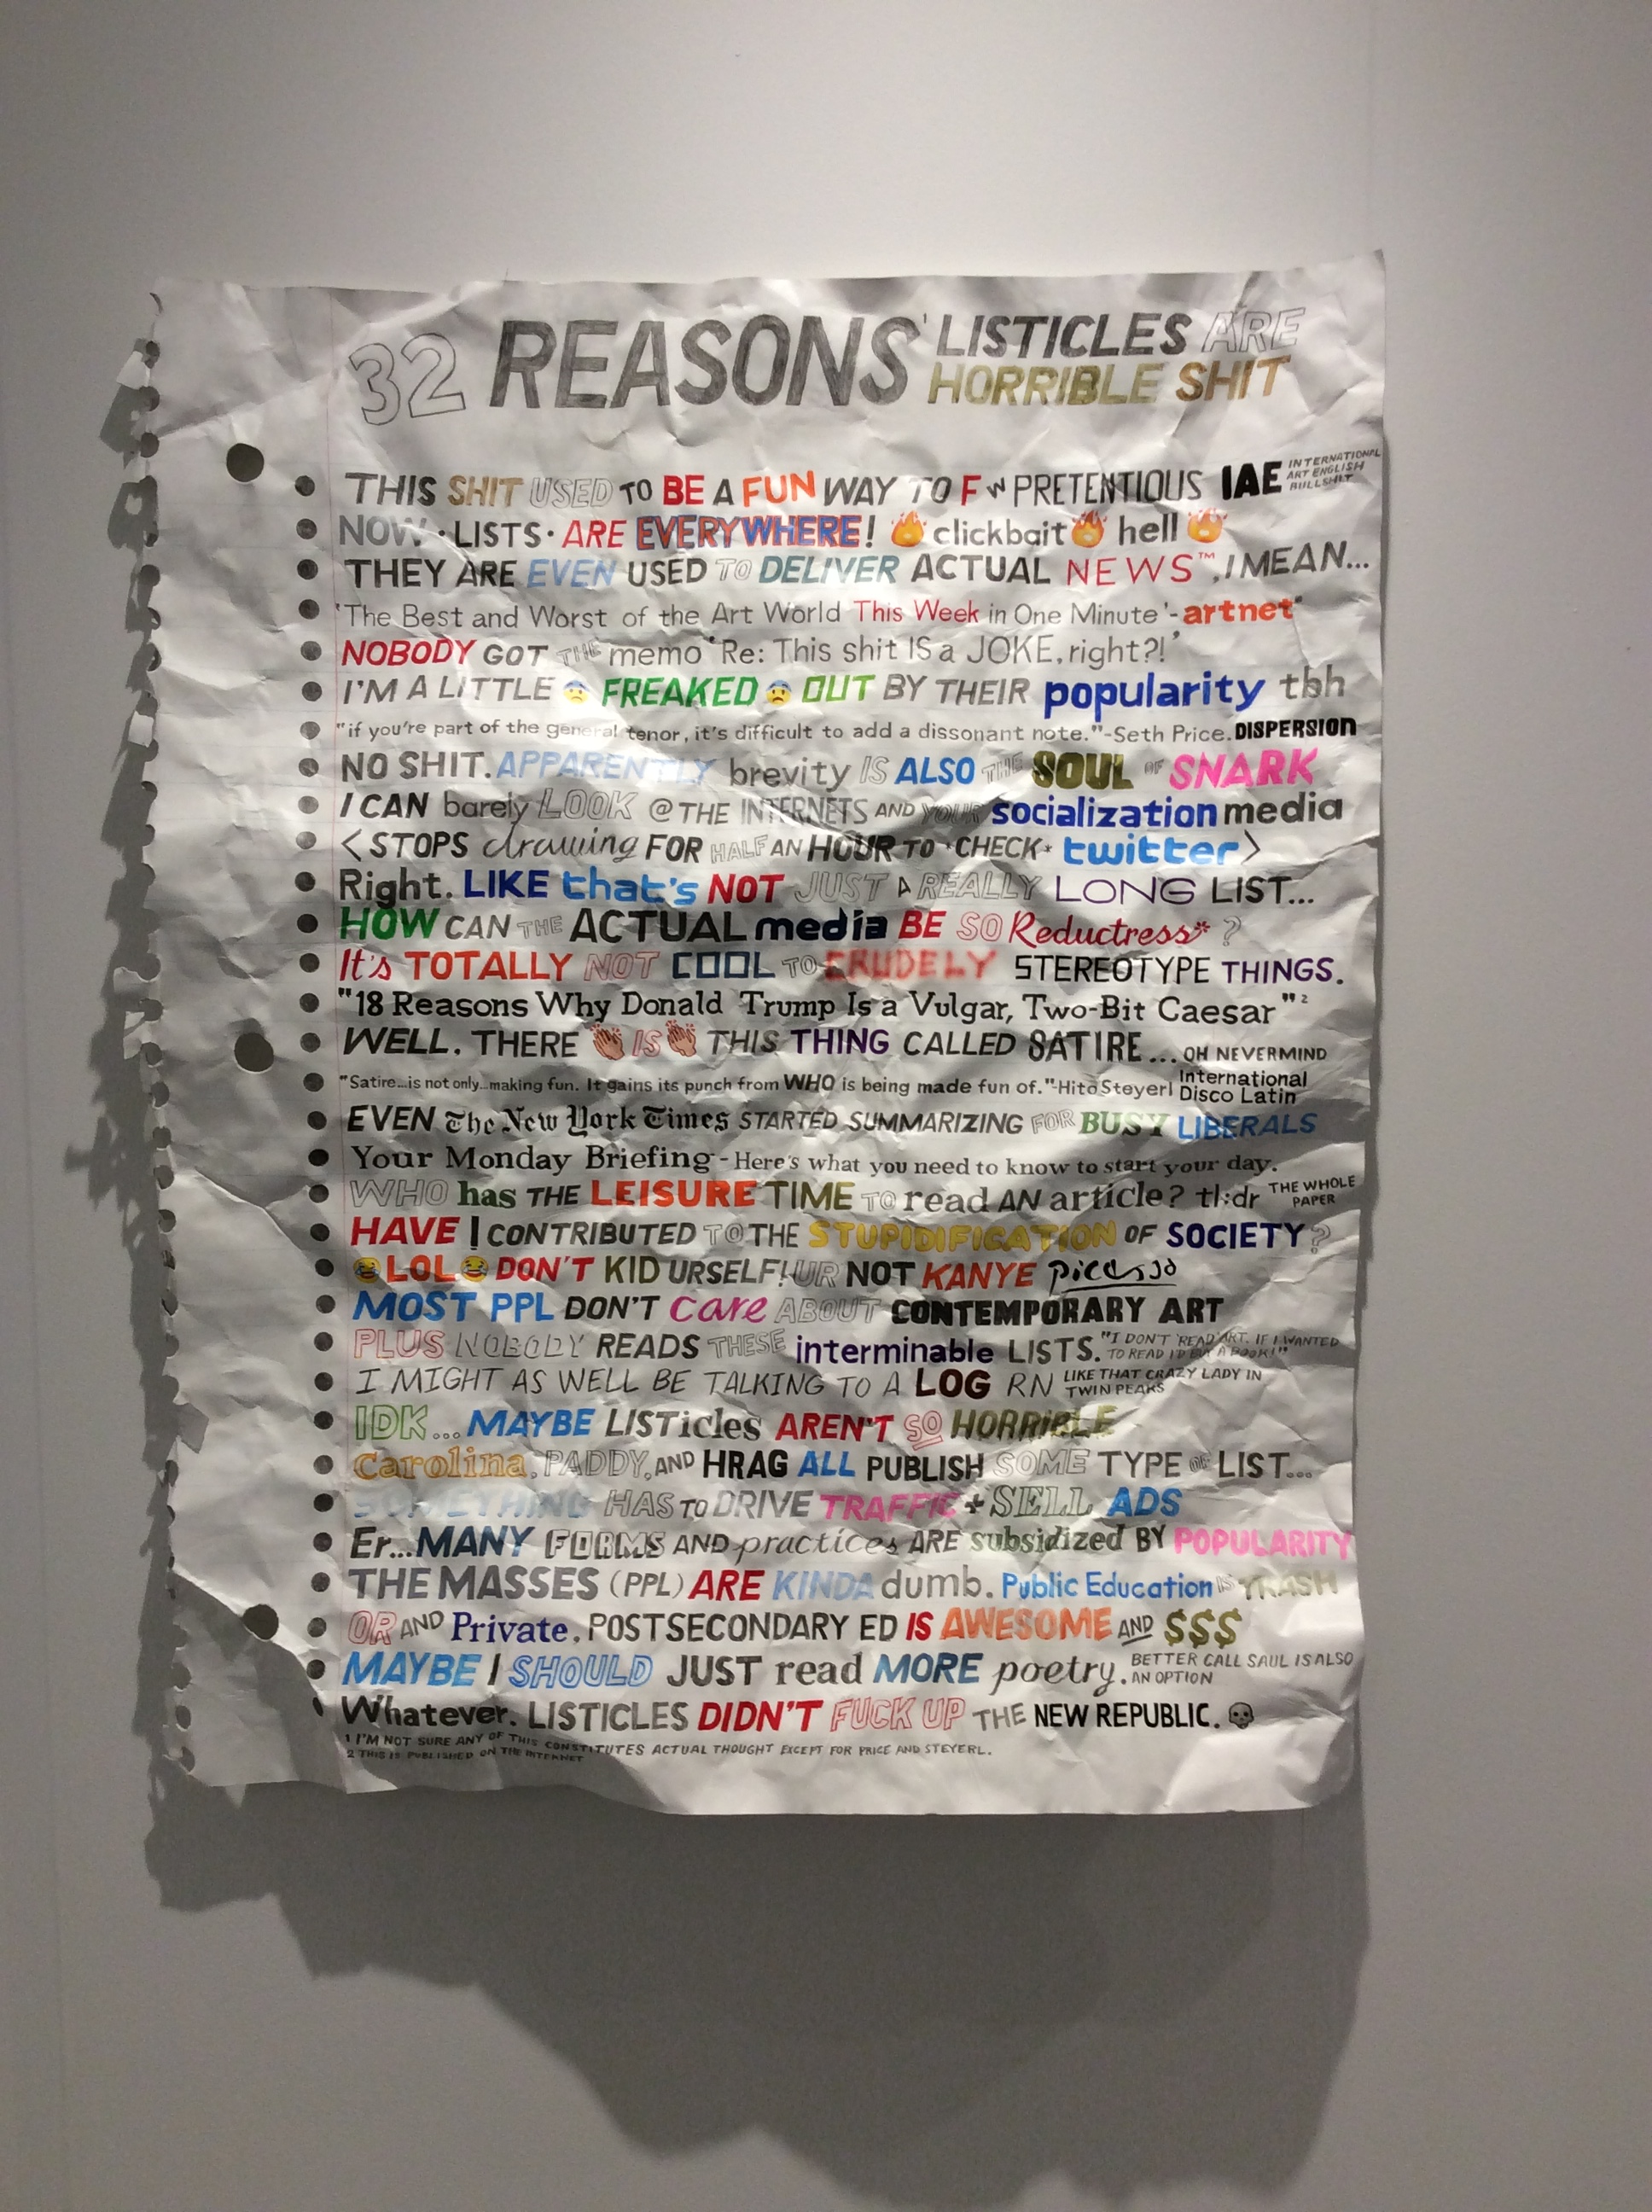 32 REASONS' LISTICLES ARE
HORRIBLE SHIT
• THIS SHIT USED TO BE A FUN WAY TO F W PRETENTIOUS IAE INTERNATIONAL ART ENGLISH BULLSHIT
• NOW • LISTS • ARE EVERYWHERE! 🔥 clickbait 🔥 hell 🔥
• THEY ARE EVEN USED TO DELIVER ACTUAL NEWS™, I MEAN...
• 'The Best and Worst of the Art World This Week in One Minute' - artnet
• NOBODY GOT THE memo 'Re: This shit IS a JOKE, right?!'
• I'M A LITTLE 😰 FREAKED 😰 OUT BY THEIR popularity tbh
• "if you're part of the general tenor, it's difficult to add a dissonant note." - Seth Price. DISPERSION
• NO SHIT. APPARENTLY brevity IS ALSO THE SOUL OF SNARK
• I CAN barely LOOK @ THE INTERNETS AND YOUR socialization media
• <STOPS drawing FOR HALF AN HOUR TO *CHECK* twitter>
• Right. LIKE that's NOT JUST A REALLY LONG LIST...
• HOW CAN THE ACTUAL media BE SO Reductress* ?
• It's TOTALLY NOT COOL TO CRUDELY STEREOTYPE THINGS.
• "18 Reasons Why Donald Trump Is a Vulgar, Two-Bit Caesar" ²
• WELL. THERE 👏 IS 👏 THIS THING CALLED SATIRE... OH NEVERMIND
• "Satire...is not only...making fun. It gains its punch from WHO is being made fun of." - Hito Steyerl International Disco Latin
• EVEN The New York Times STARTED SUMMARIZING FOR BUSY LIBERALS
• Your Monday Briefing - Here's what you need to know to start your day.
• WHO has THE LEISURE TIME TO read AN article? tl;dr THE WHOLE PAPER
• HAVE I CONTRIBUTED TO THE STUPIDIFICATION OF SOCIETY?
• 😂 LOL 😂 DON'T KID URSELF! UR NOT KANYE Picasso
• MOST PPL DON'T Care ABOUT CONTEMPORARY ART
• PLUS NOBODY READS THESE interminable LISTS. "I DON'T 'READ' ART. IF I WANTED TO READ I'D BUY A BOOK!"
• I MIGHT AS WELL BE TALKING TO A LOG RN LIKE THAT CRAZY LADY IN TWIN PEAKS
• IDK... MAYBE LISTicles AREN'T SO HORRiBLE
• Carolina, PADDY, AND HRAG ALL PUBLISH SOME TYPE OF LIST...
• SOMETHING HAS TO DRIVE TRAFFIC + SELL ADS
• Er...MANY FORMS AND practices ARE subsidized BY POPULARITY
• THE MASSES (PPL) ARE KINDA dumb. Public Education IS TRASH
• OR AND Private, POSTSECONDARY ED IS AWESOME AND $$$
• MAYBE I SHOULD JUST read MORE poetry. BETTER CALL SAUL IS ALSO AN OPTION
• Whatever. LISTICLES DIDN'T FUCK UP THE NEW REPUBLIC. 💀
1 I'M NOT SURE ANY OF THIS CONSTITUTES ACTUAL THOUGHT EXCEPT FOR PRICE AND STEYERL.
2 THIS IS PUBLISHED ON THE INTERNET